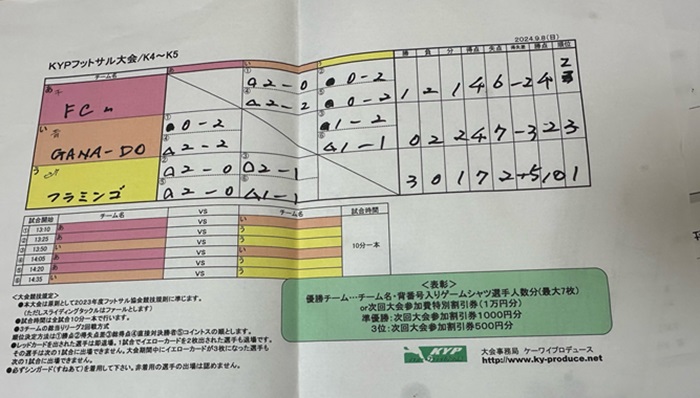 2024.9.8(日)
KYPフットサル大会/K4〜K5
チーム名 あ い う 勝 負 分 得点 失点 得失差 勝点 順位
あ FC ① 2-0 ② 0-2
④ △2-2 ⑤ 0-2 1 2 1 4 6 -2 4 2
い GANA-DO ① 0-2 ③ 1-2
④ △2-2 ⑥ △1-1 0 2 2 4 7 -3 2 3
う フラミンゴ ② 2-0 ③ 2-1
⑤ 2-0 ⑥ △1-1 3 0 1 7 2 +5 10 1
試合開始 チーム名 VS チーム名 試合時間
① 13:10 あ VS い
② 13:25 あ VS う
③ 13:50 い VS う
④ 14:05 あ VS い
⑤ 14:20 あ VS う
⑥ 14:35 い VS う
10分一本
<大会競技規定>
●本大会は原則として2023年度フットサル協会競技規則に準じます。
(ただしスライディングタックルはファールとします)
●試合時間は全試合10分一本で行います。
●3チームの総当りリーグ2回戦方式
順位決定方法は①勝点②得失点差③総得点④直接対決勝者⑤コイントスの順とします。
●レッドカードを出された選手は即退場。1試合でイエローカードを2枚出された選手も退場です。
その選手は次の1試合に出場できません。大会期間中にイエローカードが3枚になった選手も
次の1試合に出場できません。
●必ずシンガード(すねあて)を着用して下さい。非着用の選手の出場は認めません。
<表彰>
優勝チーム…チーム名・背番号入りゲームシャツ選手人数分(最大7枚)
or次回大会参加費特別割引券(1万円分)
準優勝:次回大会参加割引券1000円分
3位:次回大会参加割引券500円分
KYP
大会事務局 ケーワイプロデュース
http://www.ky-produce.net